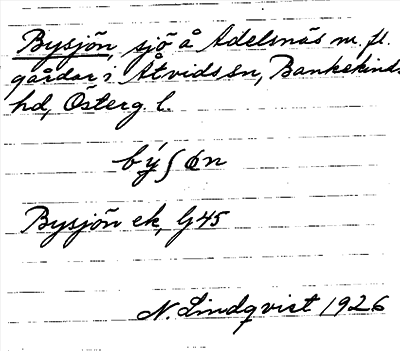 Bysjön, sjö å Adelsnäs m. fl.
gårdar i Åtvids sn, Bankekinds
hd, Österg. l.
bý∫ön
Bysjön ek, G 45
N. Lindqvist 1926